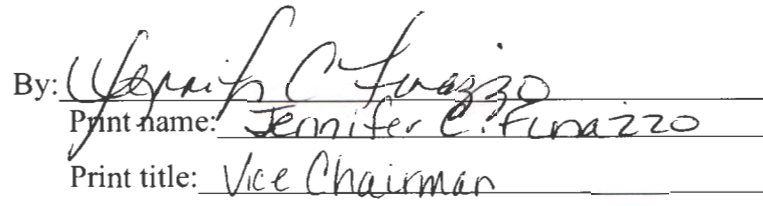 By: Jennifer C Finazzo
Print name: Jennifer C. Finazzo
Print title: Vice Chairman